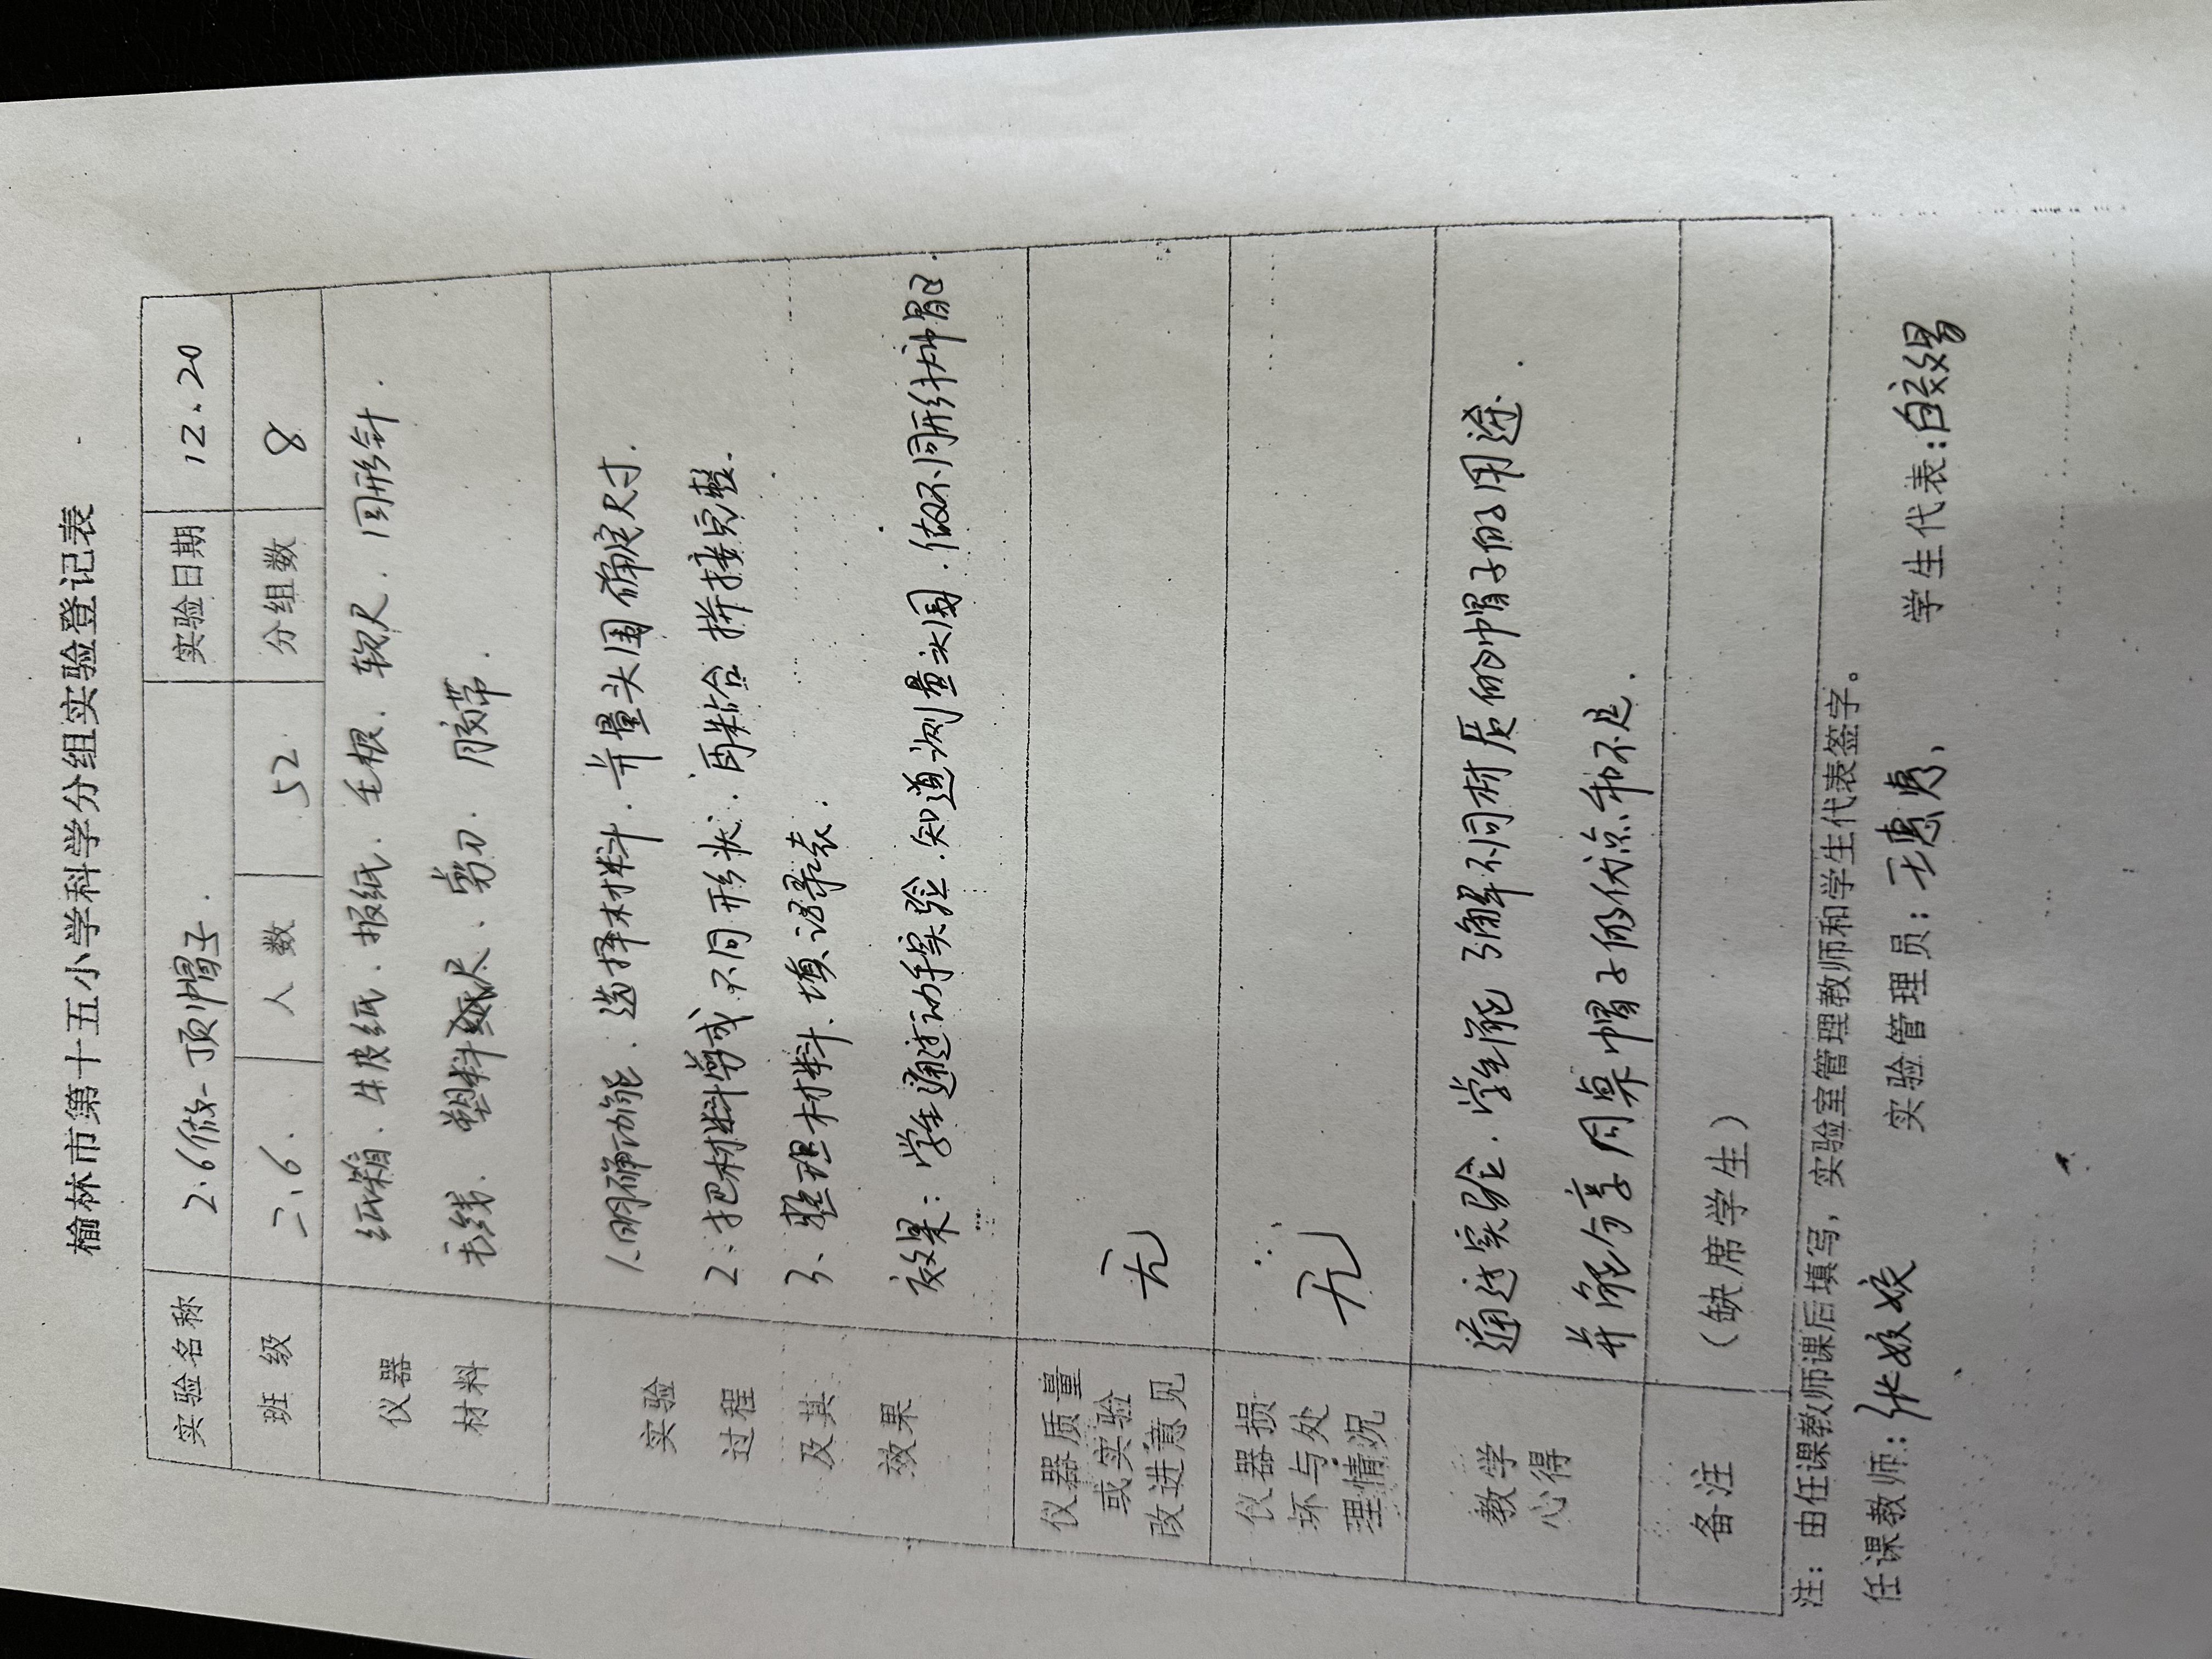 榆林市第十五小学科学分组实验登记表
实验名称 2.6做一顶帽子. 实验日期 12.20
班 级 二、6. 人 数 52. 分组数 8
仪器 纸箱、牛皮纸、报纸、毛根、软尺、回形针.
材料 毛线、塑料尺、剪刀、胶带.
实验 1.明确功能、选择材料.并量头围确定尺寸.
过程 2:把材料剪成不同形状.再粘合拼接完整.
及其 3、整理材料、填记录表.
效果 效果:学生通过动手实验.知道测量头围.做不同形状帽子.
仪器质量
或实验 无
改进意见
仪器损
坏与处 无
理情况
教学 通过实验.学生能了解不同材质的帽子的用途.
心得 并能分享同桌帽子的优点和不足.
备注 (缺席学生)
注: 由任课教师课后填写, 实验室管理教师和学生代表签字。
任课教师: 张姣姣 实验管理员: 王惠秀、 学生代表: